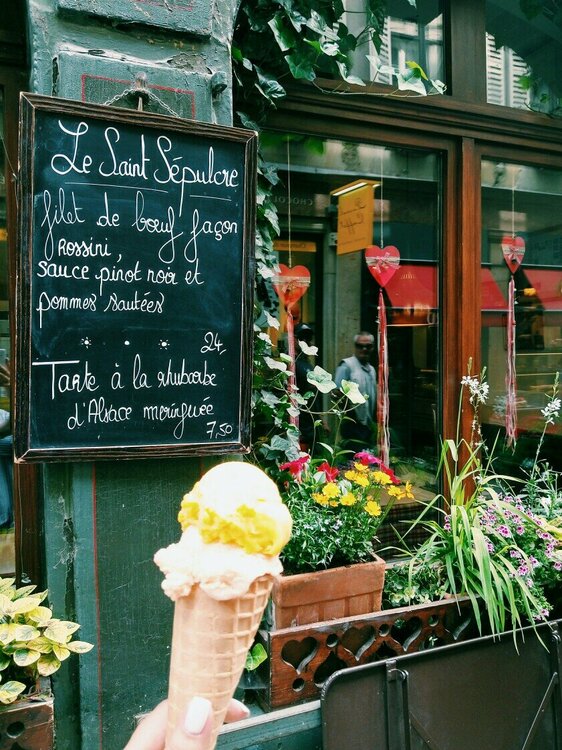 Le Saint Sépulcre
filet de bœuf façon
Rossini,
sauce pinot noir et
pommes sautées
24,
Tarte à la rhubarbe
d'Alsace meringuée
7,50